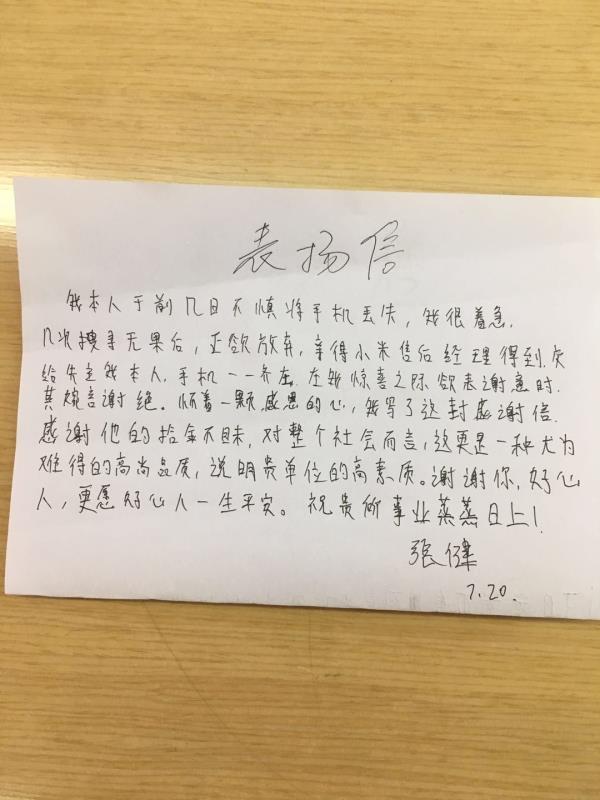 表扬信
我本人于前几日不慎将手机丢失，我很着急.
几次搜寻无果后，正欲放弃，幸得小米售后经理得到欠
给失主我本人.手机一一齐在.在我惊喜之际欲表谢意时.
其婉言谢绝.怀着一颗感恩的心，我写了这封感谢信.
感谢他的拾金不昧，对整个社会而言，这更是一种尤为
难得的高尚品质，说明贵单位的高素质。谢谢你，好心
人，更愿好心人一生平安。祝贵所事业蒸蒸日上！
张健
7.20.